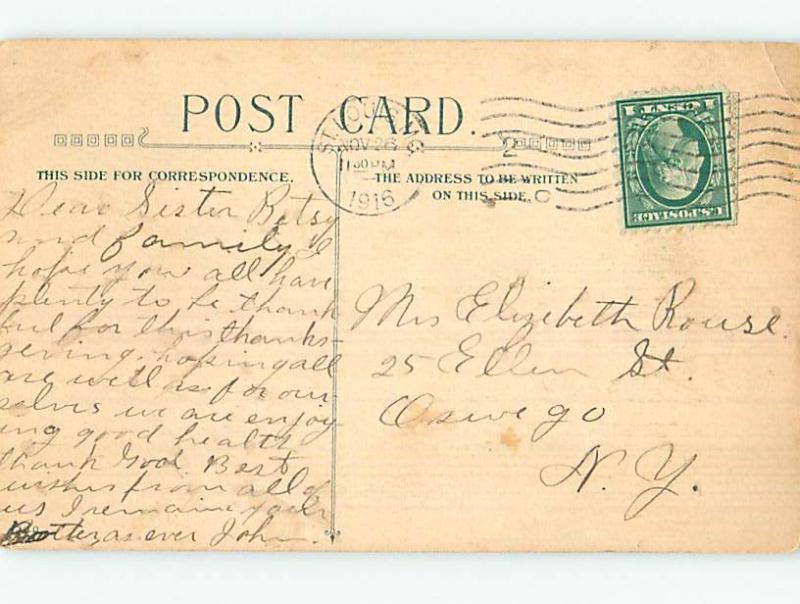 POST CARD.
ST. LOUIS, MO
NOV 26
1130 PM
1916
2
1 CENT 1
U.S.POSTAGE
THIS SIDE FOR CORRESPONDENCE.
THE ADDRESS TO BE WRITTEN
ON THIS SIDE.
Dear Sister Betsy
and family I
hope you all have
plenty to be thank
ful for this thanks-
geving, hoping all
are well as for our-
selves we are enjoy-
ing good health
thank God. Best
wishes from all of
us I remain your
Brother, as ever John.
Mrs Elizebeth Rouse.
25 Ellen St.
Oswego
N.Y.